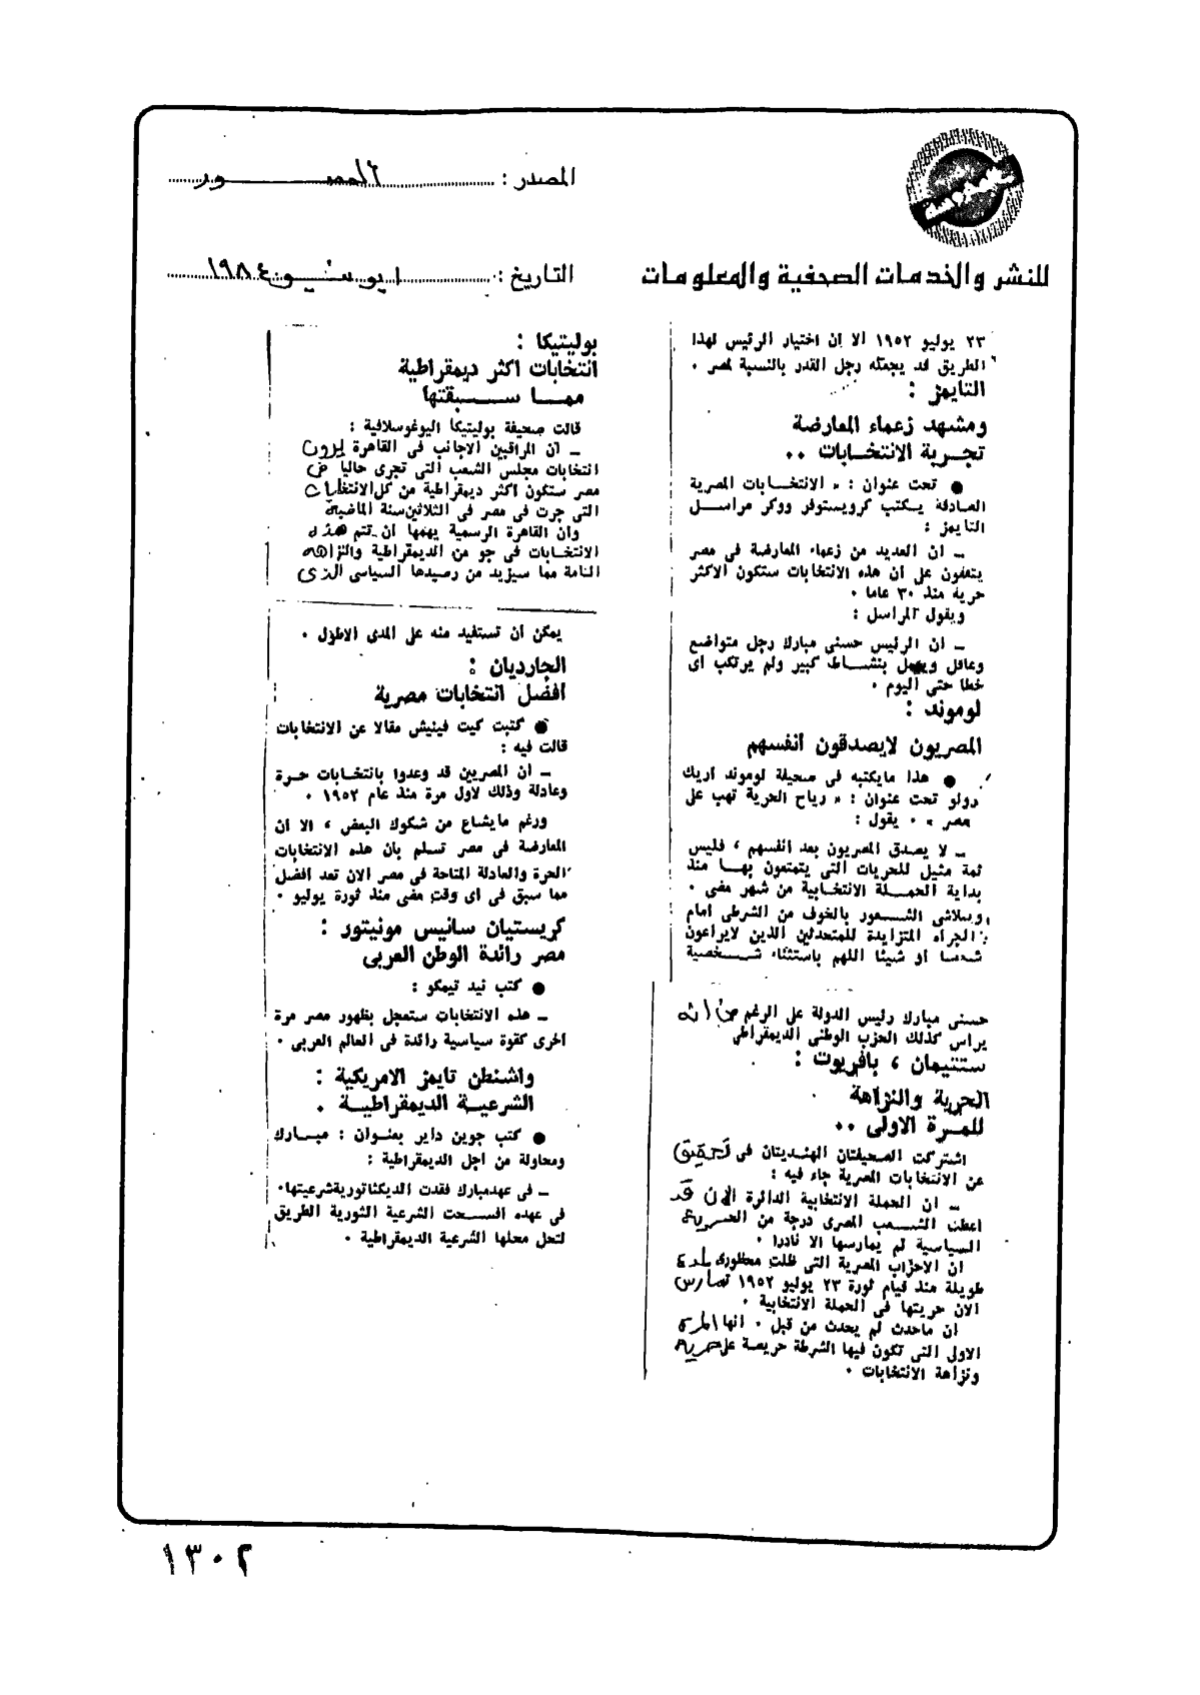 المصدر : المصــــور
للنشر والخدمات الصحفية والمعلومات
التاريخ : ١ يونيو ١٩٨٤
٢٣ يوليو ١٩٥٢ الا ان اختيار الرئيس لهذا
الطريق قد يجعله رجل القدر بالنسبة لمصر .
التايمز :
ومشهد زعماء المعارضة
تجربة الانتخابات ..
● تحت عنوان : « الانتخابات المصرية
العادلة يكتب كرويستوفر ووكر مراسل
التايمز :
ـ ان العديد من زعماء المعارضة فى مصر
يتفقون على أن هذه الانتخابات ستكون الاكثر
حرية منذ ٣٠ عاما .
ويقول المراسل :
ـ ان الرئيس حسنى مبارك رجل متواضع
وعاقل ويعمل بنشاط كبير ولم يرتكب اى
خطا حتى اليوم .
لوموند :
المصريون لايصدقون أنفسهم
● هذا مايكتبه فى صحيفة لوموند اريك
رولو تحت عنوان : « رياح الحرية تهب على
مصر » . يقول :
ـ لا يصدق المصريون بعد انفسهم ، فليس
ثمة مثيل للحريات التى يتمتعون بها منذ
بداية الحملة الانتخابية من شهر مضى .
وتلاشى الشعور بالخوف من الشرطى امام
الجراة المتزايدة للمتحدثين الذين لايراعون
شخصا او شيئا اللهم باستثناء شخصية
حسنى مبارك رئيس الدولة على الرغم من انه
يراس كذلك الحزب الوطنى الديمقراطى
ستتيمان ، بافريوت :
الحرية والنزاهة
للمرة الاولى ..
اشتركت الصحيفتان الهنديتان فى تحقيق
عن الانتخابات المصرية جاء فيه :
ـ ان الحملة الانتخابية الدائرة الان قد
اعطت الشعب المصرى درجة من الحرية
السياسية لم يمارسها الا نادرا .
ان الاحزاب المصرية التى ظلت محظورة لمدة
طويلة منذ قيام ثورة ٢٣ يوليو ١٩٥٢ تمارس
الان حريتها فى الحملة الانتخابية .
ان ماحدث لم يحدث من قبل . انها المرة
الاولى التى تكون فيها الشرطة حريصة على حرية
ونزاهة الانتخابات .
بوليتيكا :
انتخابات اكثر ديمقراطية
ممــا ســـبقتها
قالت صحيفة بوليتيكا اليوغوسلافية :
ـ أن المراقبين الاجانب فى القاهرة يرون
انتخابات مجلس الشعب التى تجرى حاليا فى
مصر ستكون اكثر ديمقراطية من كل الانتخابات
التى جرت فى مصر فى الثلاثين سنة الماضية
وأن القاهرة الرسمية يهمها ان تتم هذه
الانتخابات فى جو من الديمقراطية والنزاهه
التامة مما سيزيد من رصيدها السياسى الذى
يمكن أن تستفيد منه على المدى الاطول .
الجارديان :
افضل انتخابات مصرية
● كتبت كيت فينيش مقالا عن الانتخابات
قالت فيه :
ـ ان المصريين قد وعدوا بانتخابات حرة
وعادلة وذلك لاول مرة منذ عام ١٩٥٢ .
ورغم مايشاع من شكوك البعض ، الا أن
المعارضة فى مصر تسلم بان هذه الانتخابات
الحرة والعادلة المتاحة فى مصر الان تعد افضل
مما سبق فى اى وقت مضى منذ ثورة يوليو .
كريستيان سانيس مونيتور :
مصر رائدة الوطن العربى
● كتب نيد تيمكو :
ـ هذه الانتخابات ستعجل بظهور مصر مرة
اخرى كقوة سياسية رائدة فى العالم العربى .
واشنطن تايمز الامريكية :
الشرعية الديمقراطية .
● كتب جوين داير بعنوان : مبارك
ومحاولة من اجل الديمقراطية :
ـ فى عهد مبارك فقدت الديكتاتورية شرعيتها .
فى عهده افسحت الشرعية الثورية الطريق
لتحل محلها الشرعية الديمقراطية .
١٣٠٢